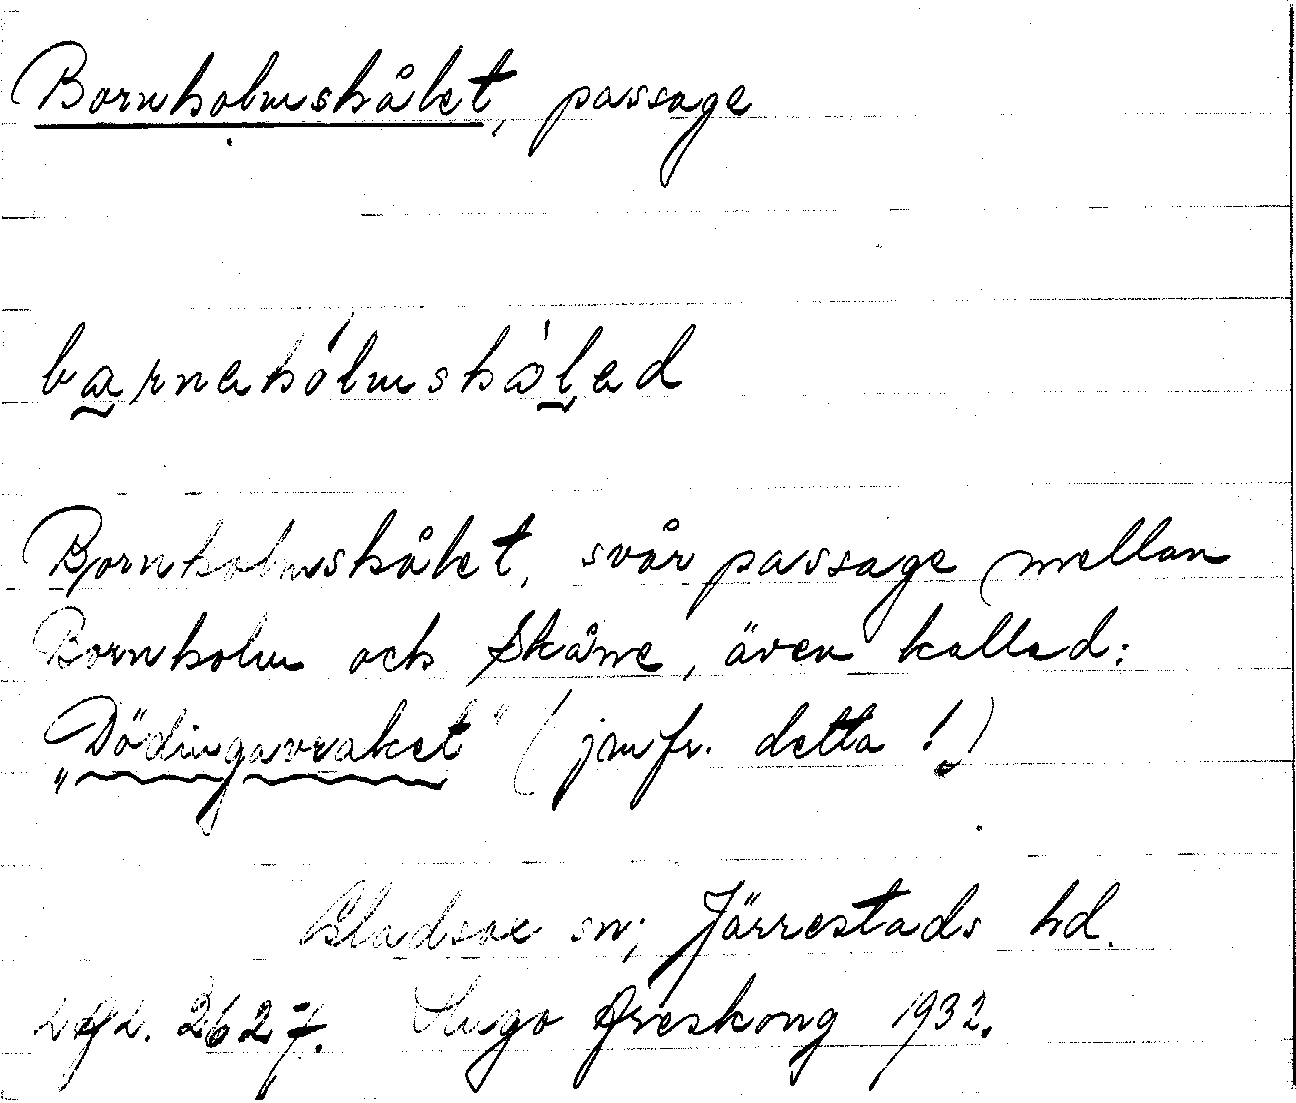 Bornholmshålet, passage
barnahólmshålad
Bornholmshålet, svår passage mellan
Bornholm och Skåne, även kallad:
„Dödingavraket" (jmfr. detta!)
Gladsax sn; Järrestads hd.
2627. Hugo Areskoug 1932.